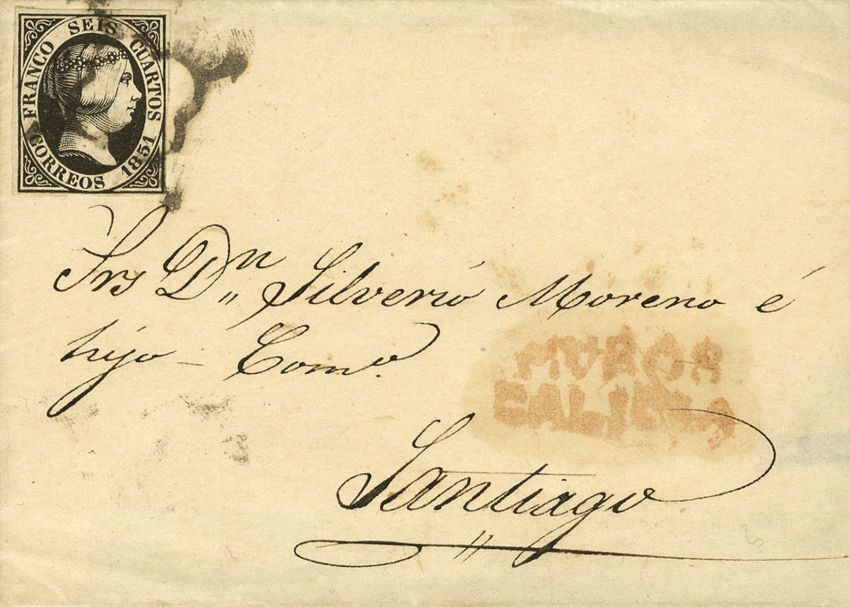 FRANCO SEIS CUARTOS
CORREOS 1851
Srs Dn Silverio Moreno é
hijo - Como.
MUROS
GALICIA
Santiago